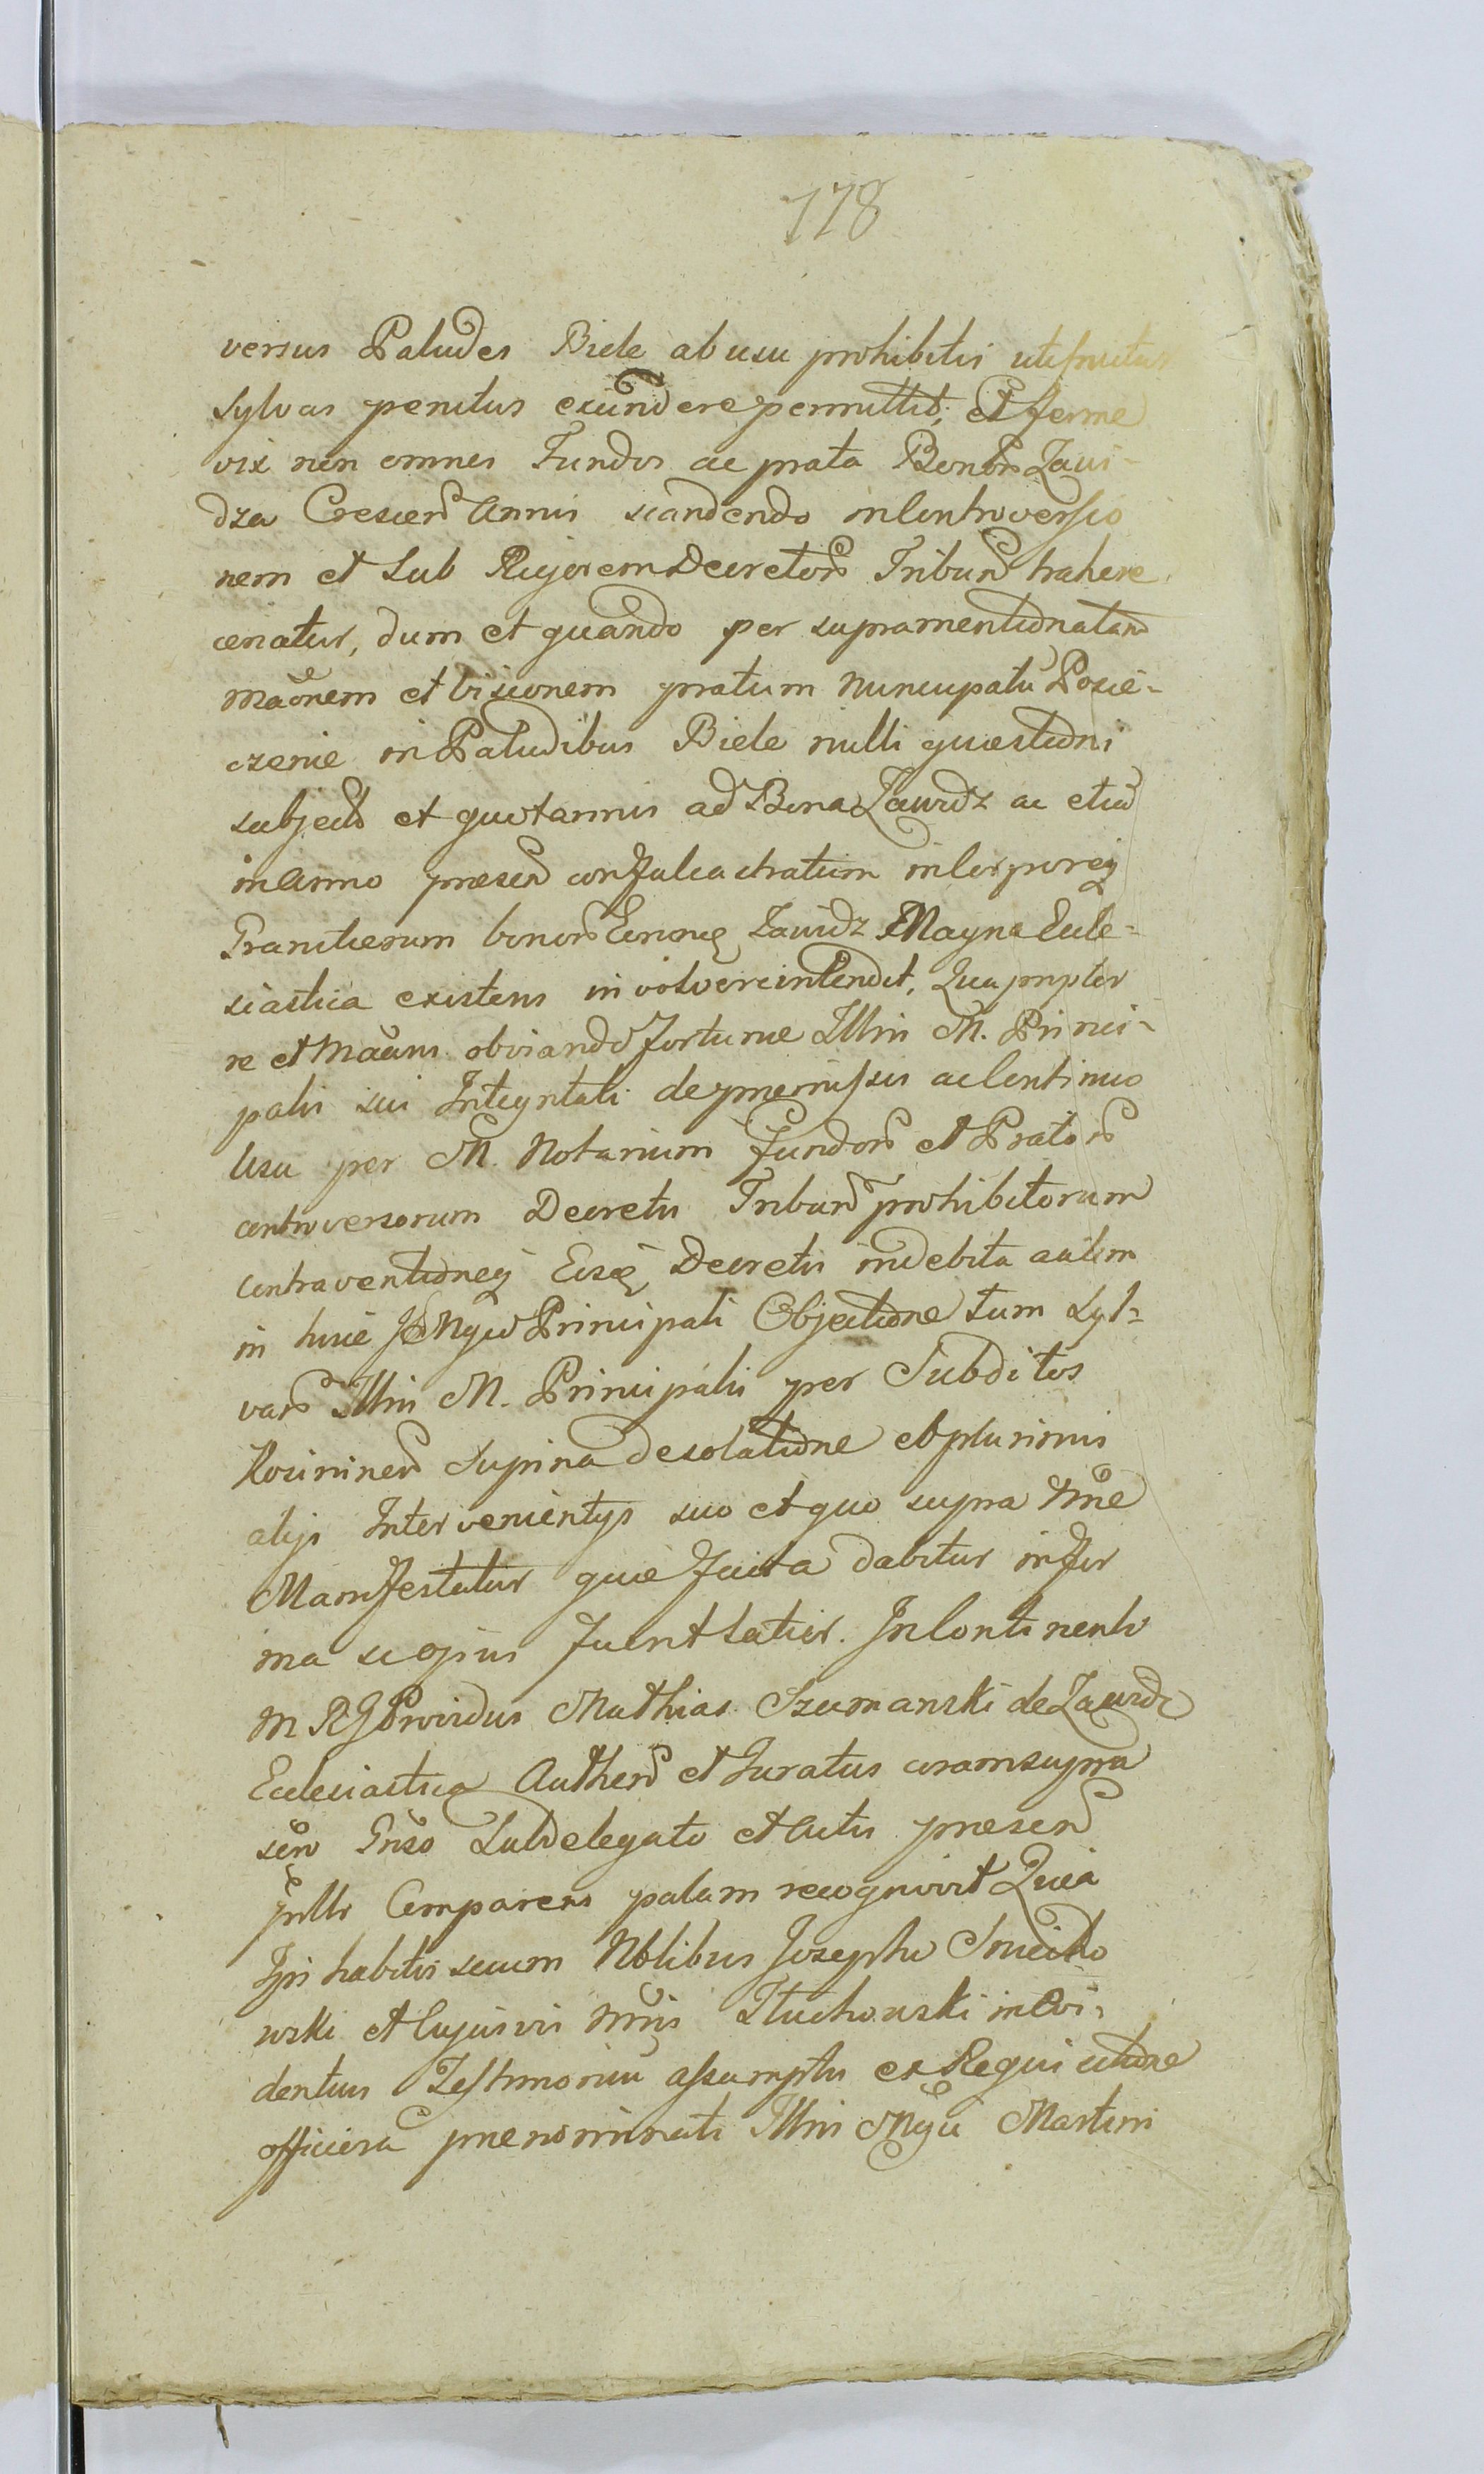 778
versus Paludes Biele ab usu prohibitis utifruitur
Sylvas penitus exũndere permittit; Et ferme
vix non omnes Fundos ac prata Bonor Zawi-
dza Crescen Annis scandendo in Controversio
nem et Sub Rigorem Decretor Tribun trahere
conatur, dum et quando per supramentionatam
maõnem et visionem pratum nuncupatũ Posie-
czenie in Paludibus Biele nulli quæstioni
subject et quotannis ad Bona Zawidz ac etia
in Anno præsen confalcastratum in Corporeq
Granicierum bonor Earumq Zawidz Magna Eccle-
siastica existens involvere intendit, Quapropter
re et maũm obviando fortunæ Illm̃i M. Princi-
palis sui Integritati de præmissis ac Continuo
Usu per M. Notarium fundor et Prator
controversorum Decretis Tribun prohibitorum
Contraventioneq Eisq Decretis indebita autem
in hunc Mgco Principali Objectione tum Syl-
var Illm̃i M. Principalis per Subditos
Supina desolatione et plurimis
alijs Intervenientijs suo et quo supra nñe
Manifestatur quæ facta dabitur infor
ma sæpius fuerit latior. In Continenti
M R G Providus Mathias Szumanski de Zawidz
Ecclesiastica Authen et Juratus coramsupra
sen Griso Subdelegato et Actis præsen
pñllr Comparens palam recognovit Quia
Ipse habitis secum Nblibus Josepho Smiecho
wski et Cujusvis nñis Tluchowski in Evi-
dentius Testimoniũ assumptis ex Requisitione
officiosa prænominati Illm̃i Mgci Martini